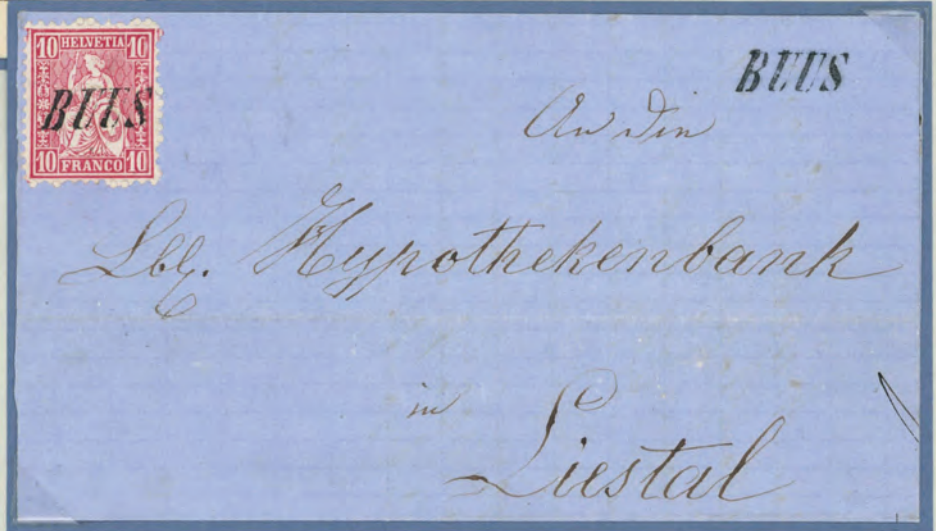 10 HELVETIA 10
BUUS
10 FRANCO 10
BUUS
An Die
Lbl. Hypothekenbank
in
Liestal